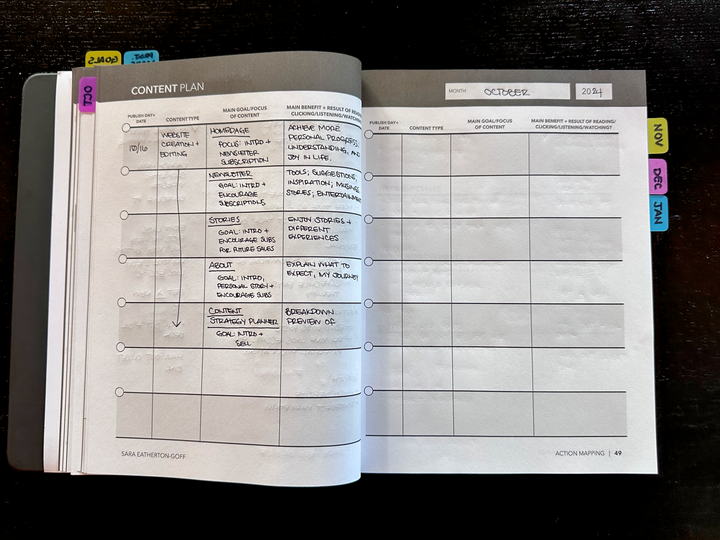 GOALS
OCT
CONTENT PLAN
PUBLISH DAY+
DATE
CONTENT TYPE
MAIN GOAL/FOCUS
OF CONTENT
MAIN BENEFIT + RESULT OF READING/
CLICKING/LISTENING/WATCHING?
10/16
WEBSITE
CREATION +
EDITING
HOMEPAGE
FOCUS: INTRO +
NEWSLETTER
SUBSCRIPTION
ACHIEVE MORE
PERSONAL PROGRESS,
UNDERSTANDING, AND
JOY IN LIFE.
NEWSLETTER
GOAL: INTRO +
ENCOURAGE
SUBSCRIPTIONS
TOOLS; SUGGESTIONS;
INSPIRATION; MUSINGS
STORIES; ENTERTAINMENT
STORIES
GOAL: INTRO +
ENCOURAGE SUBS
FOR FUTURE SALES
ENJOY STORIES +
DIFFERENT
EXPERIENCES
ABOUT
GOAL: INTRO,
PERSONAL STORY +
ENCOURAGE SUBS
EXPLAIN WHAT TO
EXPECT, MY JOURNEY
CONTENT
STRATEGY PLANNER
GOAL: INTRO +
SELL
BREAKDOWN
PREVIEW OF
SARA EATHERTON-GOFF
MONTH
OCTOBER
2024
PUBLISH DAY+
DATE
CONTENT TYPE
MAIN GOAL/FOCUS
OF CONTENT
MAIN BENEFIT + RESULT OF READING/
CLICKING/LISTENING/WATCHING?
ACTION MAPPING | 49
NOV
DEC
JAN